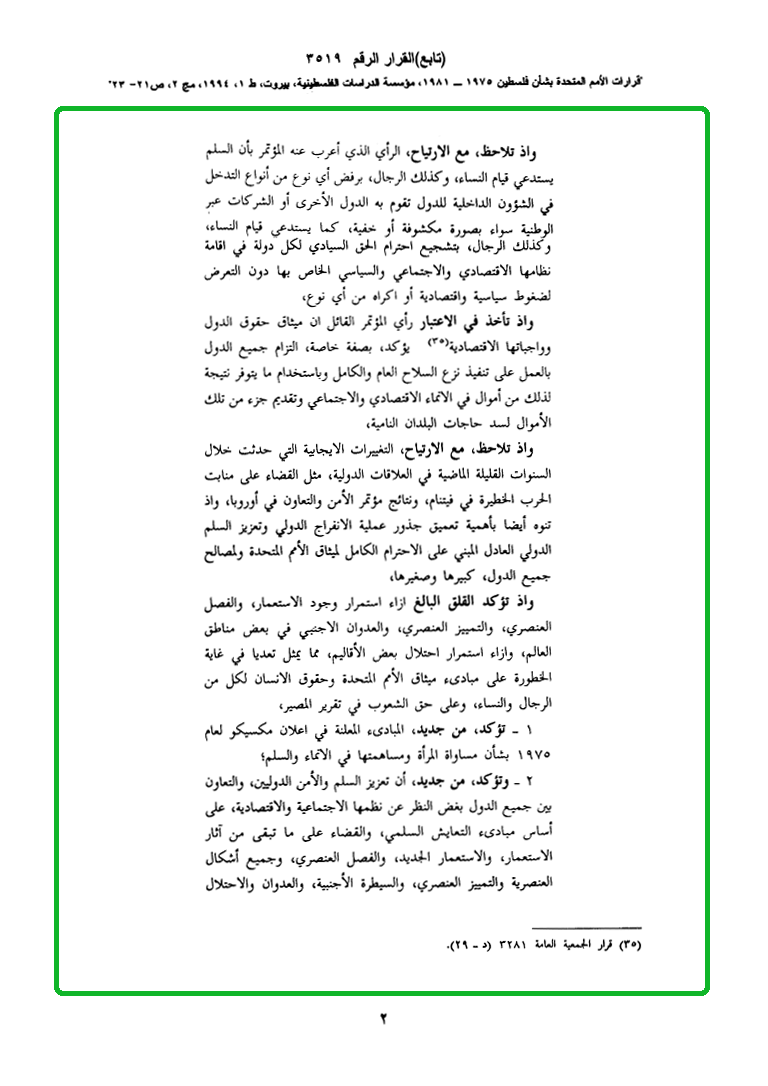 (تابع)القرار الرقم ٣٥١٩
"قرارات الأمم المتحدة بشأن فلسطين ١٩٧٥ ــ ١٩٨١، مؤسسة الدراسات الفلسطينية، بيروت، ط ١، ١٩٩٤، مج ٢، ص٢١- ٢٣"
واذ تلاحظ، مع الارتياح، الرأي الذي أعرب عنه المؤتمر بأن السلم
يستدعي قيام النساء، وكذلك الرجال، برفض أي نوع من أنواع التدخل
في الشؤون الداخلية للدول تقوم به الدول الأخرى أو الشركات عبر
الوطنية سواء بصورة مكشوفة أو خفية، كما يستدعي قيام النساء،
وكذلك الرجال، بتشجيع احترام الحق السيادي لكل دولة في اقامة
نظامها الاقتصادي والاجتماعي والسياسي الخاص بها دون التعرض
لضغوط سياسية واقتصادية أو اكراه من أي نوع،
واذ تأخذ في الاعتبار رأي المؤتمر القائل ان ميثاق حقوق الدول
وواجباتها الاقتصادية(٣٥) يؤكد، بصفة خاصة، التزام جميع الدول
بالعمل على تنفيذ نزع السلاح العام والكامل وباستخدام ما يتوفر نتيجة
لذلك من أموال في الانماء الاقتصادي والاجتماعي وتقديم جزء من تلك
الأموال لسد حاجات البلدان النامية،
واذ تلاحظ، مع الارتياح، التغييرات الايجابية التي حدثت خلال
السنوات القليلة الماضية في العلاقات الدولية، مثل القضاء على منابت
الحرب الخطيرة في فيتنام، ونتائج مؤتمر الأمن والتعاون في أوروبا، واذ
تنوه أيضا بأهمية تعميق جذور عملية الانفراج الدولي وتعزيز السلم
الدولي العادل المبني على الاحترام الكامل لميثاق الأمم المتحدة ولمصالح
جميع الدول، كبيرها وصغيرها،
واذ تؤكد القلق البالغ ازاء استمرار وجود الاستعمار، والفصل
العنصري، والتمييز العنصري، والعدوان الاجنبي في بعض مناطق
العالم، وازاء استمرار احتلال بعض الأقاليم، مما يمثل تعديا في غاية
الخطورة على مبادىء ميثاق الأمم المتحدة وحقوق الانسان لكل من
الرجال والنساء، وعلى حق الشعوب في تقرير المصير،
١ ـ تؤكد، من جديد، المبادىء المعلنة في اعلان مكسيكو لعام
١٩٧٥ بشأن مساواة المرأة ومساهمتها في الانماء والسلم؛
٢ ـ وتؤكد، من جديد، أن تعزيز السلم والأمن الدوليين، والتعاون
بين جميع الدول بغض النظر عن نظمها الاجتماعية والاقتصادية، على
أساس مبادىء التعايش السلمي، والقضاء على ما تبقى من آثار
الاستعمار، والاستعمار الجديد، والفصل العنصري، وجميع أشكال
العنصرية والتمييز العنصري، والسيطرة الأجنبية، والعدوان والاحتلال
(٣٥) قرار الجمعية العامة ٣٢٨١ (د ـ ٢٩).
٢